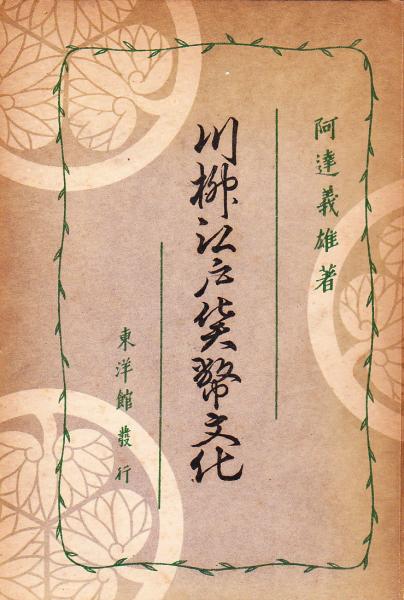 阿達義雄著
川柳江戸貨幣文化
東洋館發行